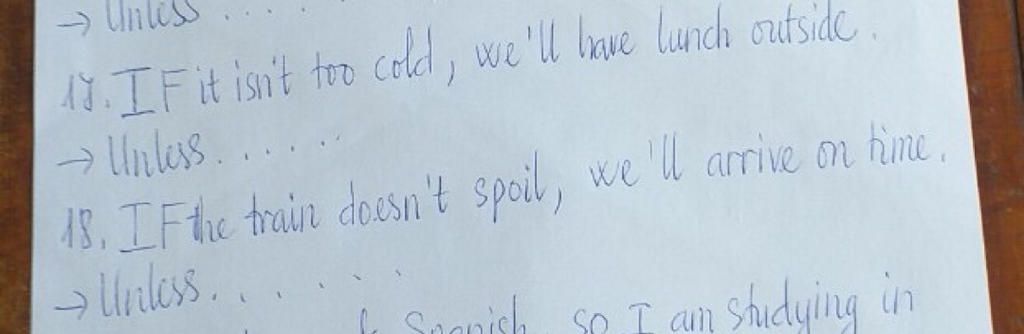 → Unless . . . .
17. IF it isn't too cold, we'll have lunch outside.
→ Unless . . . . . .
18. IF the train doesn't spoil, we'll arrive on time.
→ Unless . . . . . .
Spanish, so I am studying in